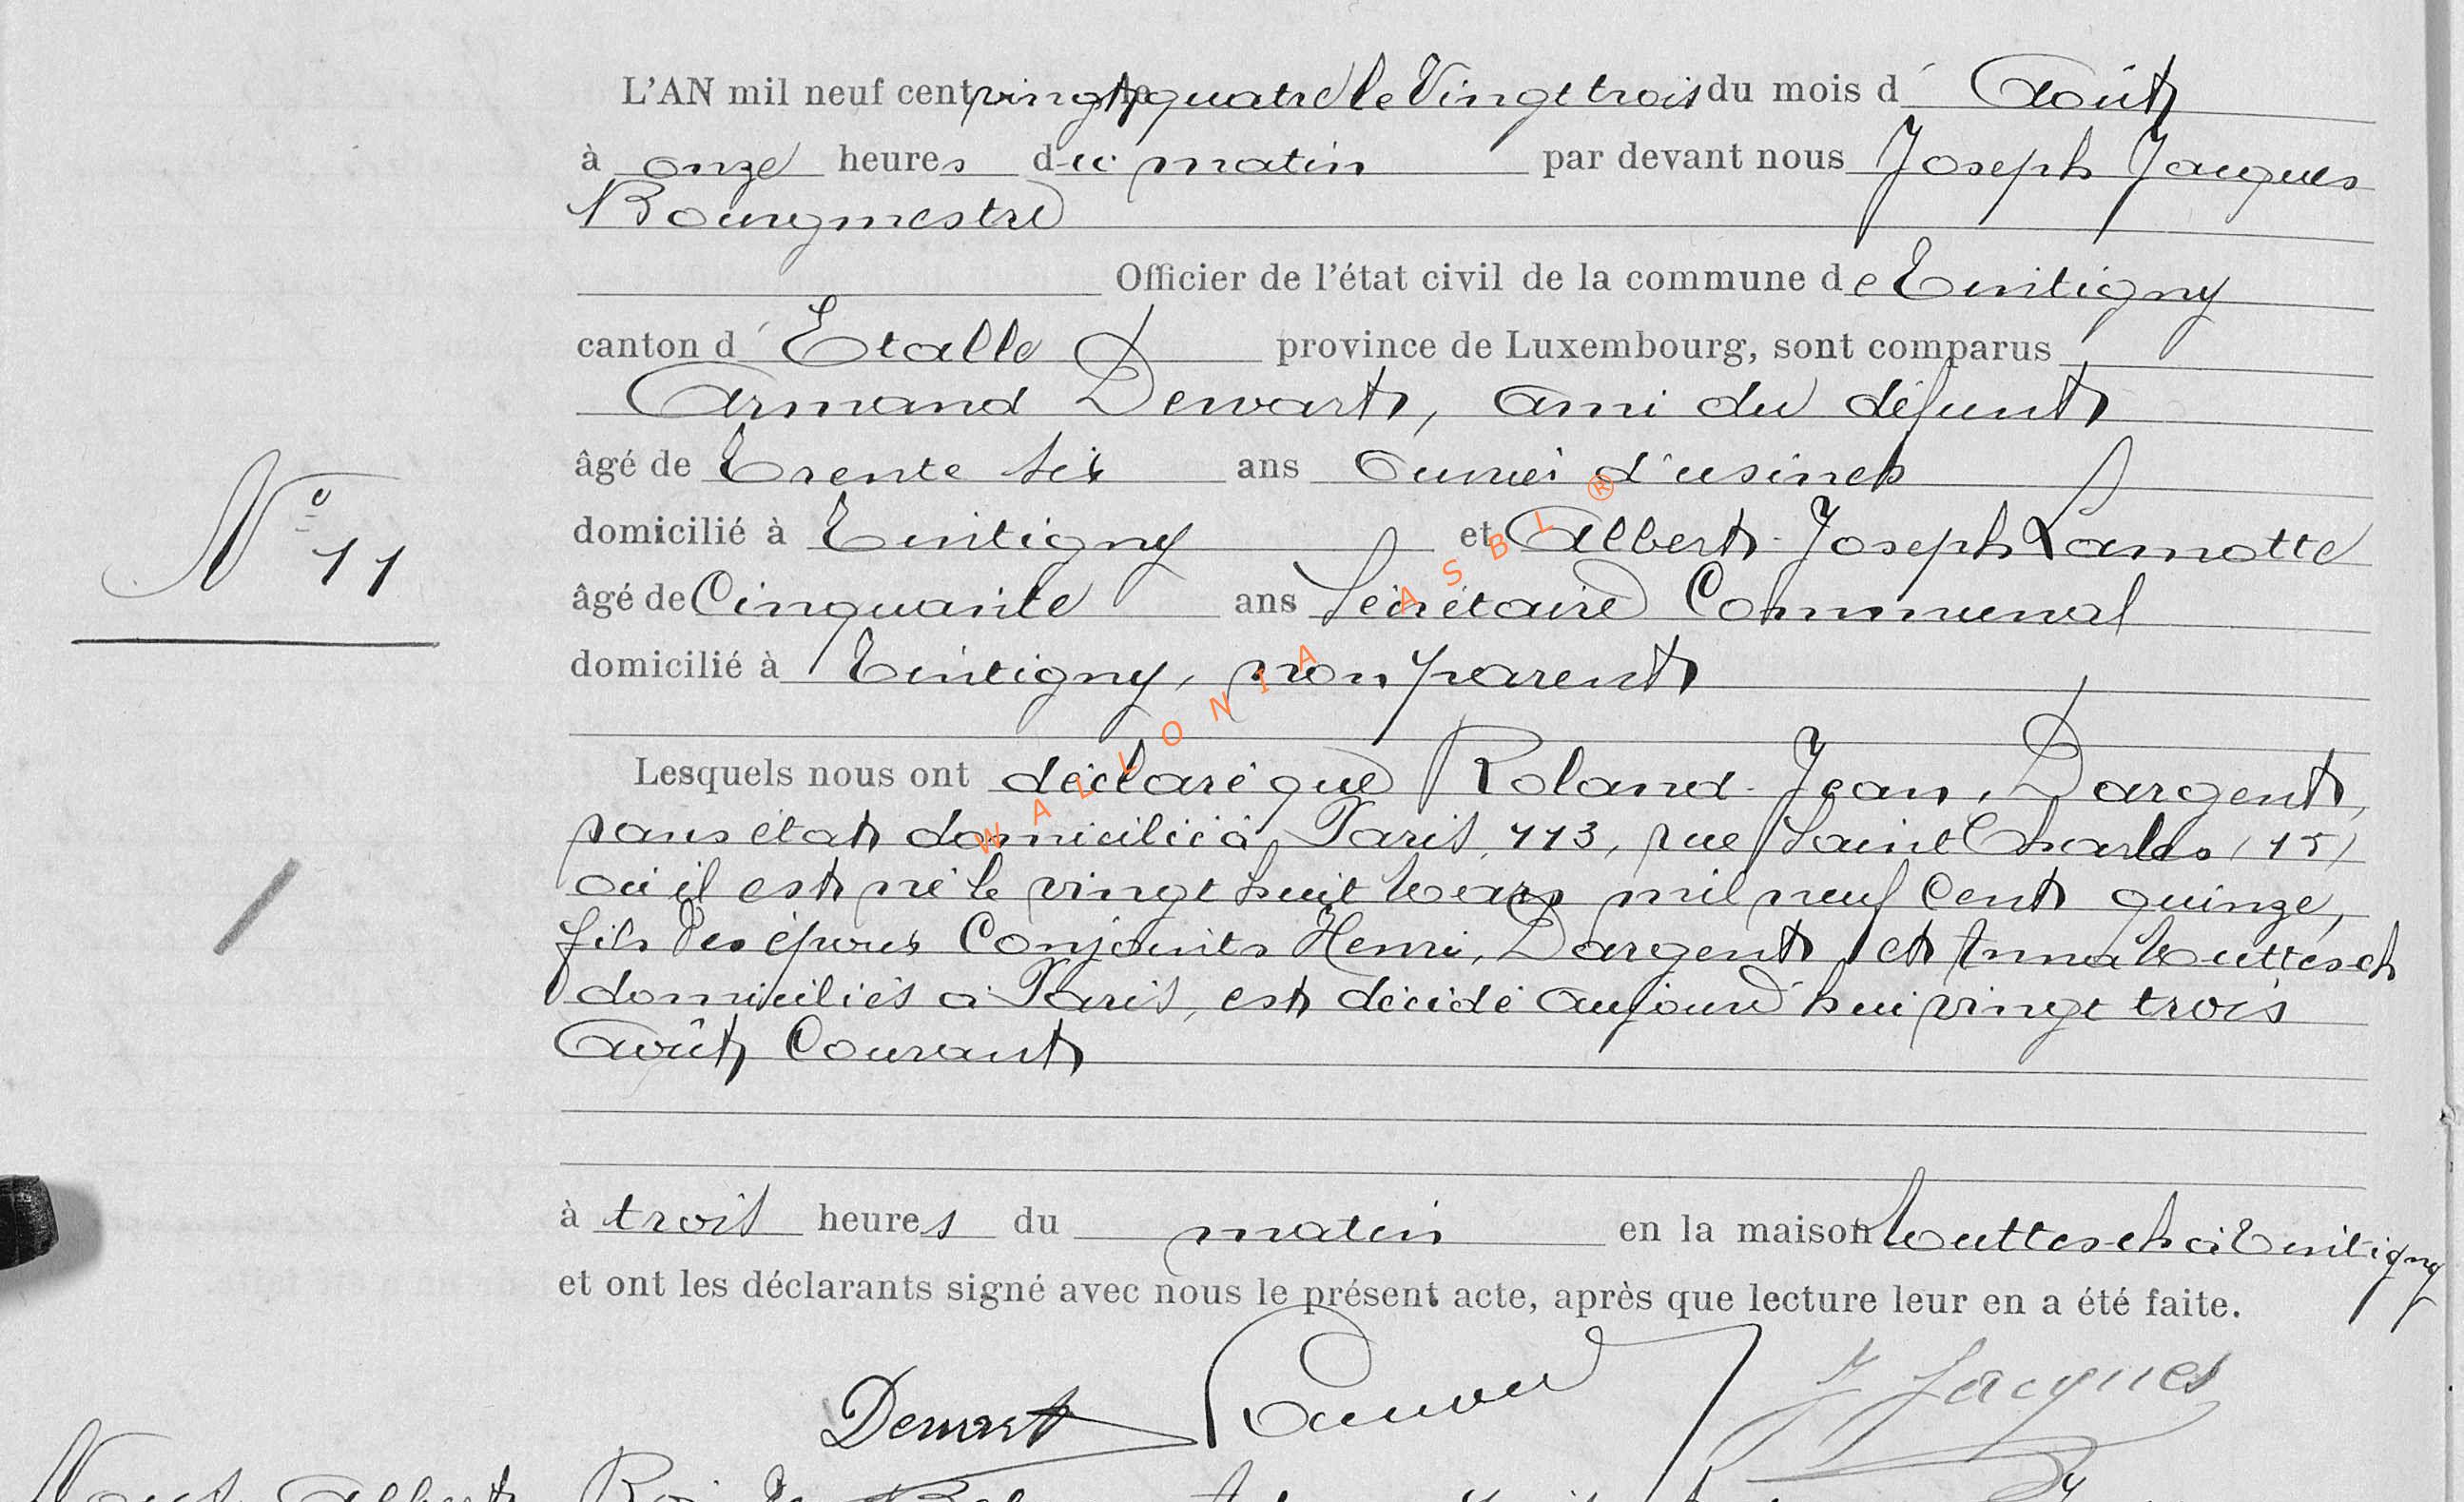 L'AN mil neuf cent vingt quatre le Vingt trois du mois d' Août
à onze heures du matin par devant nous Joseph Jacques
Bourgmestre
Officier de l'état civil de la commune de Tintigny
canton d' Etalle province de Luxembourg, sont comparus
Armand Dewart, ami du défunt
âgé de Trente six ans ouvrier d'usines
domicilié à Tintigny et Albert-Joseph Lamotte
N° 11
âgé de Cinquante ans Secrétaire Communal
domicilié à Tintigny, non parent
Lesquels nous ont déclaré que Roland-Jean, Dargent,
sans état domicilié à Paris, 113, rue Saint Charles (15)
où il est né le vingt huit mars mil neuf cent quinze,
fils des époux Conjoints Henri, Dargent et Anna Wuttesch
domiciliés à Paris, est décédé aujourd'hui vingt trois
Août Courant
à trois heures du matin en la maison Wuttesch à Tintigny
et ont les déclarants signé avec nous le présent acte, après que lecture leur en a été faite.
Dewart J Jacques
Albert Roi
WALLONIA ASBL ®